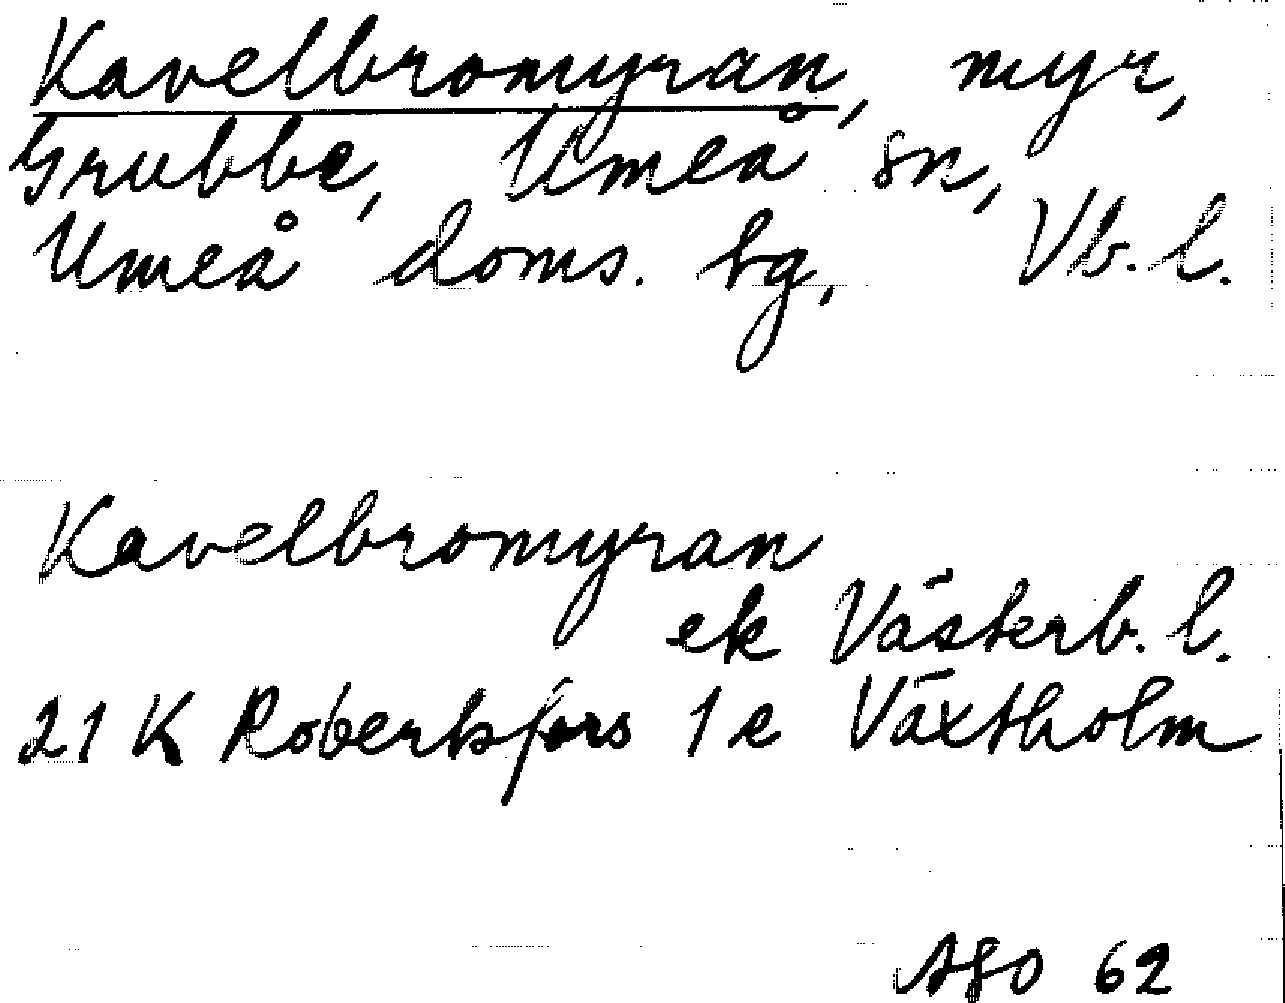 Kavelbromyran, myr,
Grubbe, Umeå sn,
Umeå doms. tg, Vb. l.
Kavelbromyran
ek Västerb. l.
21 K Robertsfors 1 e Växtholm
AGO 62